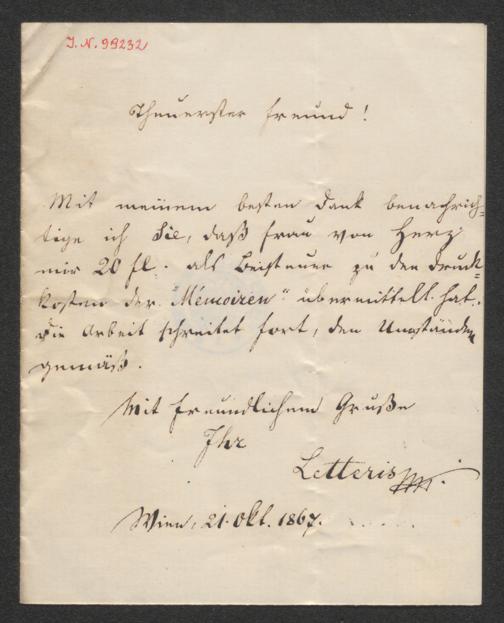 J. N. 99232
Theuerster Freund!
Mit meinem besten Dank benachrich-
tige ich Sie, daß Frau von Herz
mir 20 fl. als Beisteuer zu den Druck-
kosten der "Memoiren" übermittelt hat.
Die Arbeit schreitet fort, den Umständen
gemäß.
Mit freundlichem Gruße
Ihr
Letteris
Wien, 21. Okt. 1867.